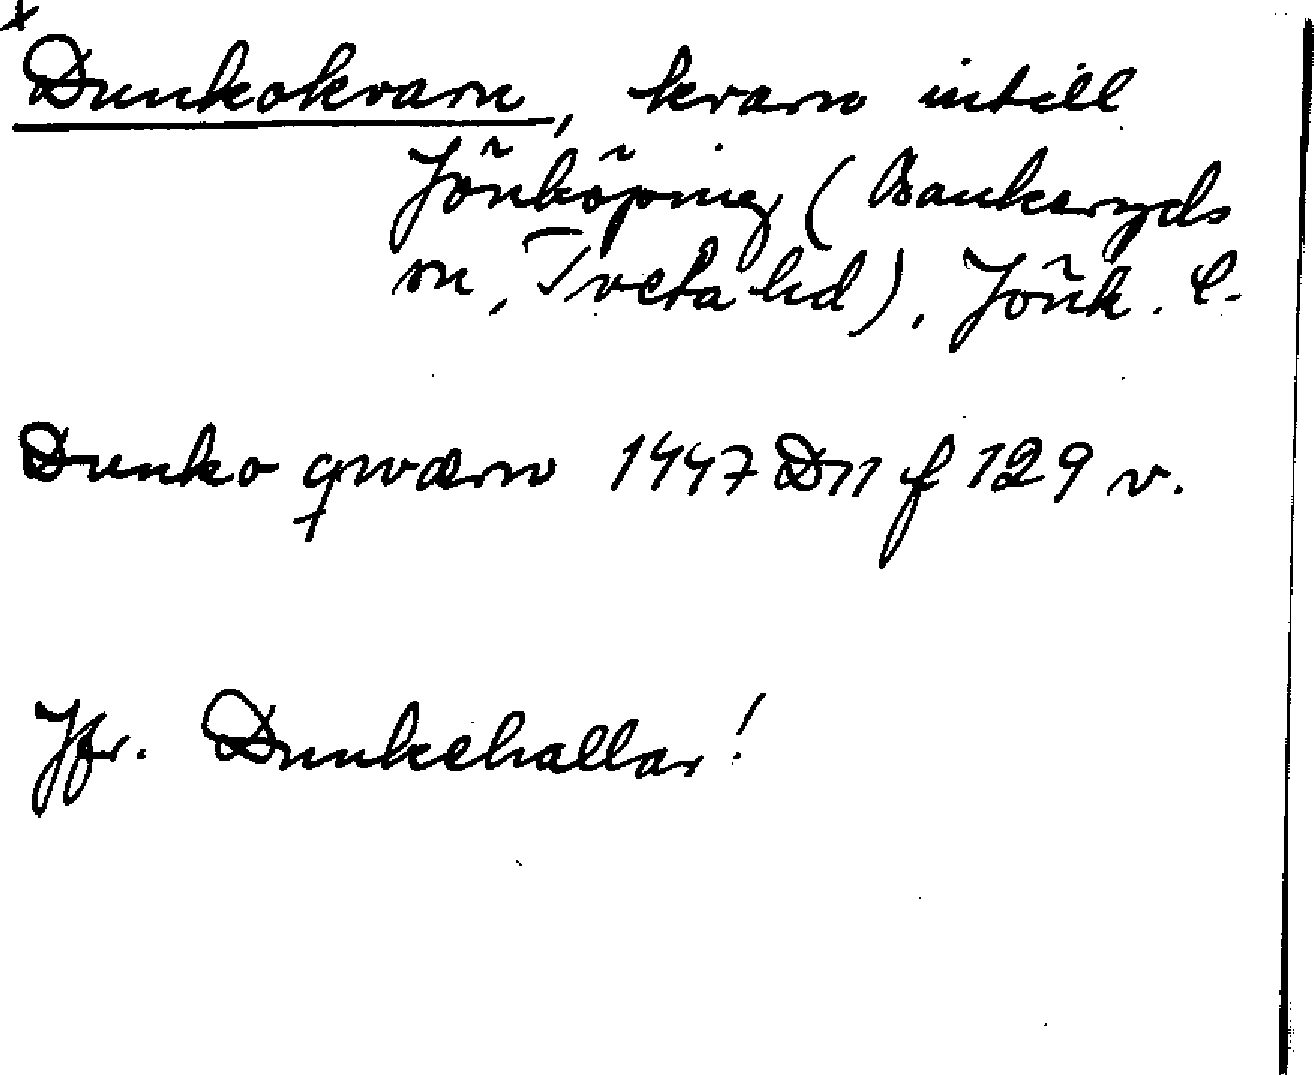 Dunkokvarn, kvarn intill
Jönköping (Bankeryds
sn, Tveta hd), Jönk. l.
Dunko qwærn 1447 D11 f 129 v.
Jfr. Dunkehallar!